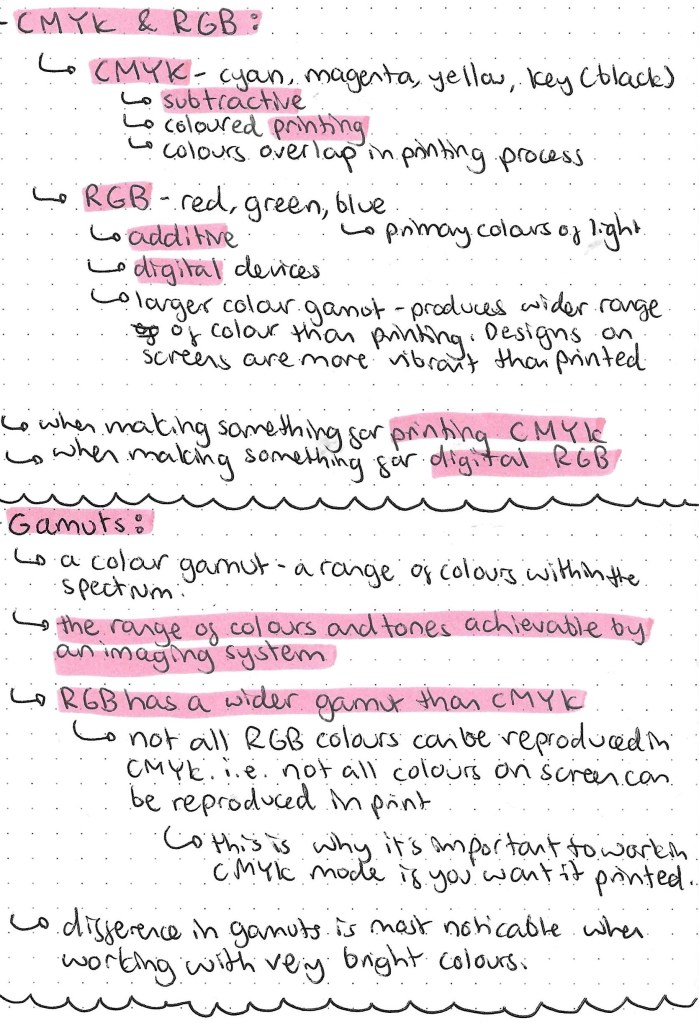 - CMYK & RGB:
↳ CMYK - cyan, magenta, yellow, key (black)
↳ subtractive
↳ coloured printing
↳ colours overlap in printing process
↳ RGB - red, green, blue
↳ additive ↳ primary colours of light
↳ digital devices
↳ larger colour gamut - produces wider range
of colour than printing. Designs on
screens are more vibrant than printed
↳ when making something for printing CMYK
↳ when making something for digital RGB
Gamuts:
↳ a colour gamut - a range of colours within the
spectrum.
↳ the range of colours and tones achievable by
an imaging system
↳ RGB has a wider gamut than CMYK
↳ not all RGB colours can be reproduced in
CMYK. i.e. not all colours on screen can
be reproduced in print
↳ this is why it's important to work in
CMYK mode if you want it printed.
↳ difference in gamuts is most noticable when
working with very bright colours.